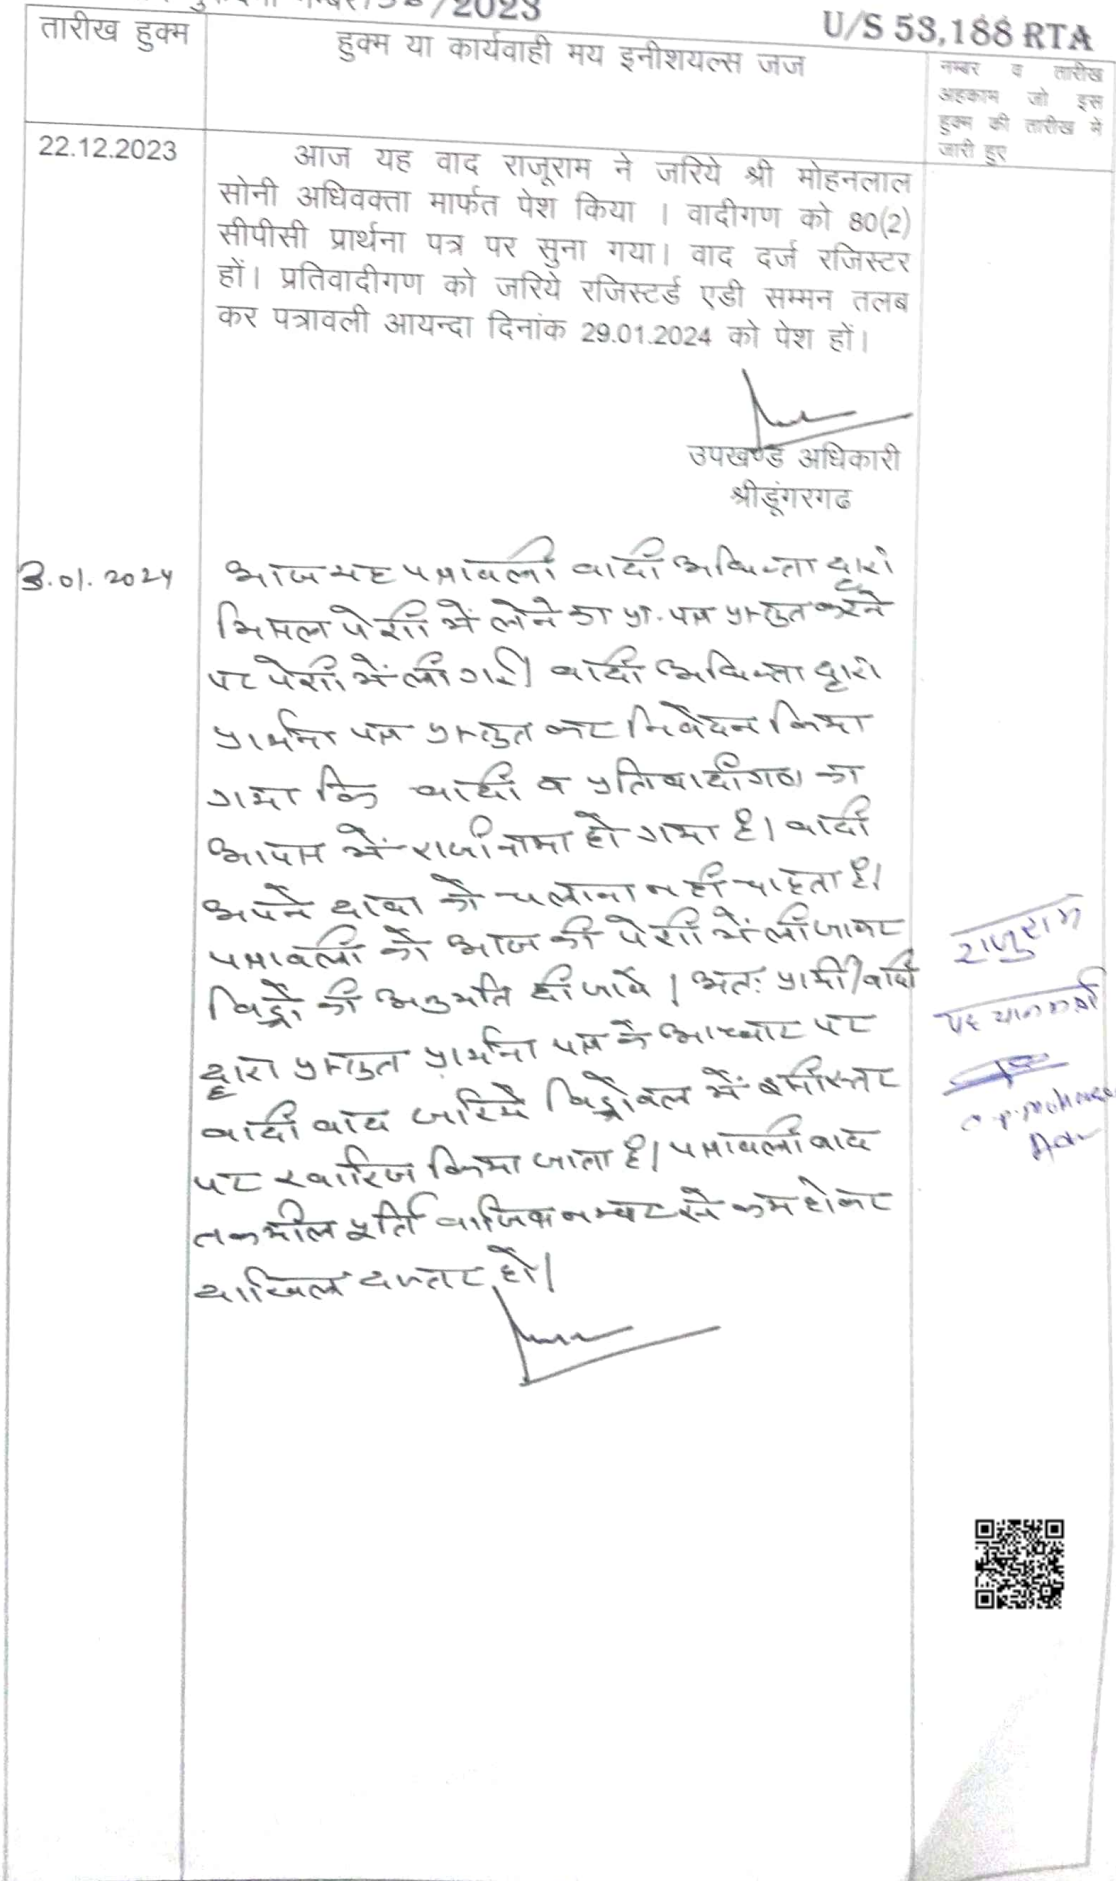 /2023
U/S 53,188 RTA
तारीख हुक्म
हुक्म या कार्यवाही मय इनीशयल्स जज
नम्बर व तारीख
अहकाम जो इस
हुक्म की तारीख में
जारी हुए
22.12.2023
आज यह वाद राजूराम ने जरिये श्री मोहनलाल
सोनी अधिवक्ता मार्फत पेश किया । वादीगण को 80(2)
सीपीसी प्रार्थना पत्र पर सुना गया। वाद दर्ज रजिस्टर
हों। प्रतिवादीगण को जरिये रजिस्टर्ड एडी सम्मन तलब
कर पत्रावली आयन्दा दिनांक 29.01.2024 को पेश हों।
उपखण्ड अधिकारी
श्रीडूंगरगढ
3.01.2024
आज यह पत्रावली वादी अधिवक्ता द्वारा
मिसल पेशी में लेने का प्रा. पत्र प्रस्तुत करने
पर पेशी में ली गई। वादी अधिवक्ता द्वारा
प्रार्थना पत्र प्रस्तुत कर निवेदन किया
गया कि वादी व प्रतिवादीगण का
आपस में राजीनामा हो गया है। वादी
अपने दावा को चलाना नहीं चाहता है।
पत्रावली को आज की पेशी में ली जाकर
विड्रो की अनुमति दी जावे । अतः प्रार्थी/वादी
द्वारा प्रस्तुत प्रार्थना पत्र के आधार पर
वादी वाद जरिये विड्रोवल में इसी स्तर
पर खारिज किया जाता है। पत्रावली बाद
तकमील पूर्ति वाजिब नम्बर से कम होकर
दाखिल दफ्तर हो।
राजुराम